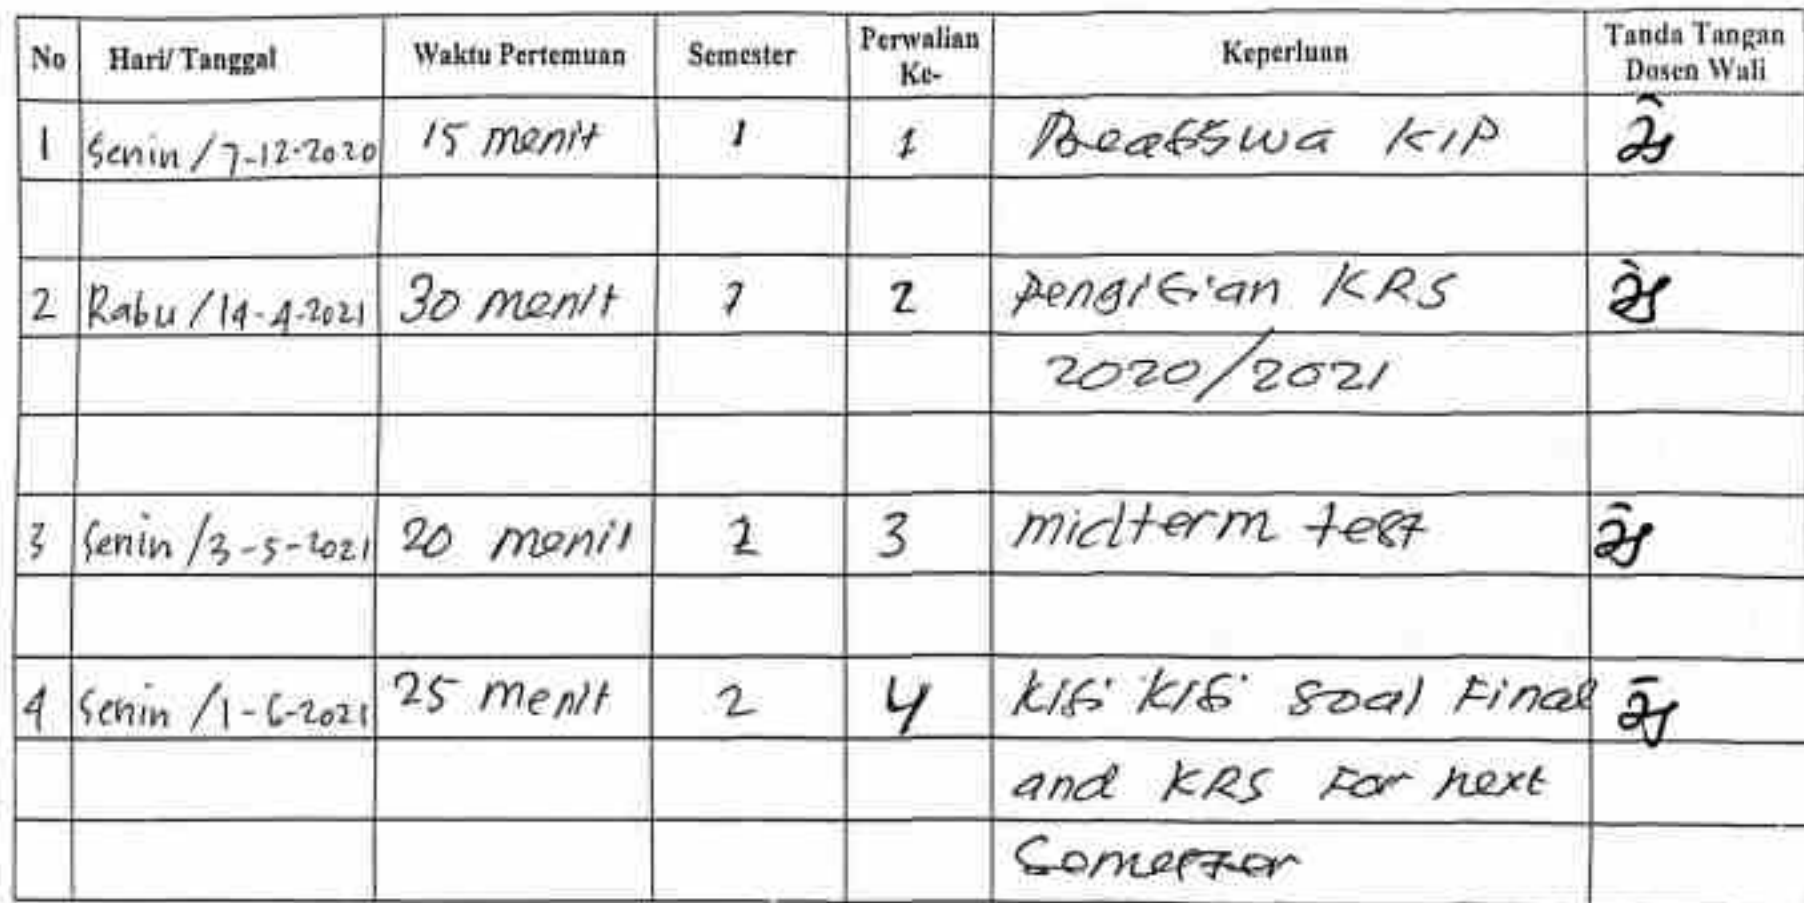 No Hari/ Tanggal Waktu Pertemuan Semester Perwalian Ke- Keperluan Tanda Tangan Dosen Wali
1 Senin / 7-12-2020 15 menit 1 1 Beasiswa KIP
2 Rabu / 14-4-2021 30 menit 2 pengisian KRS
2020/2021
3 Senin / 3-5-2021 20 menit 2 3 midterm test
4 Senin / 1-6-2021 25 menit 2 4 kisi kisi soal Final
and KRS For next
Semester